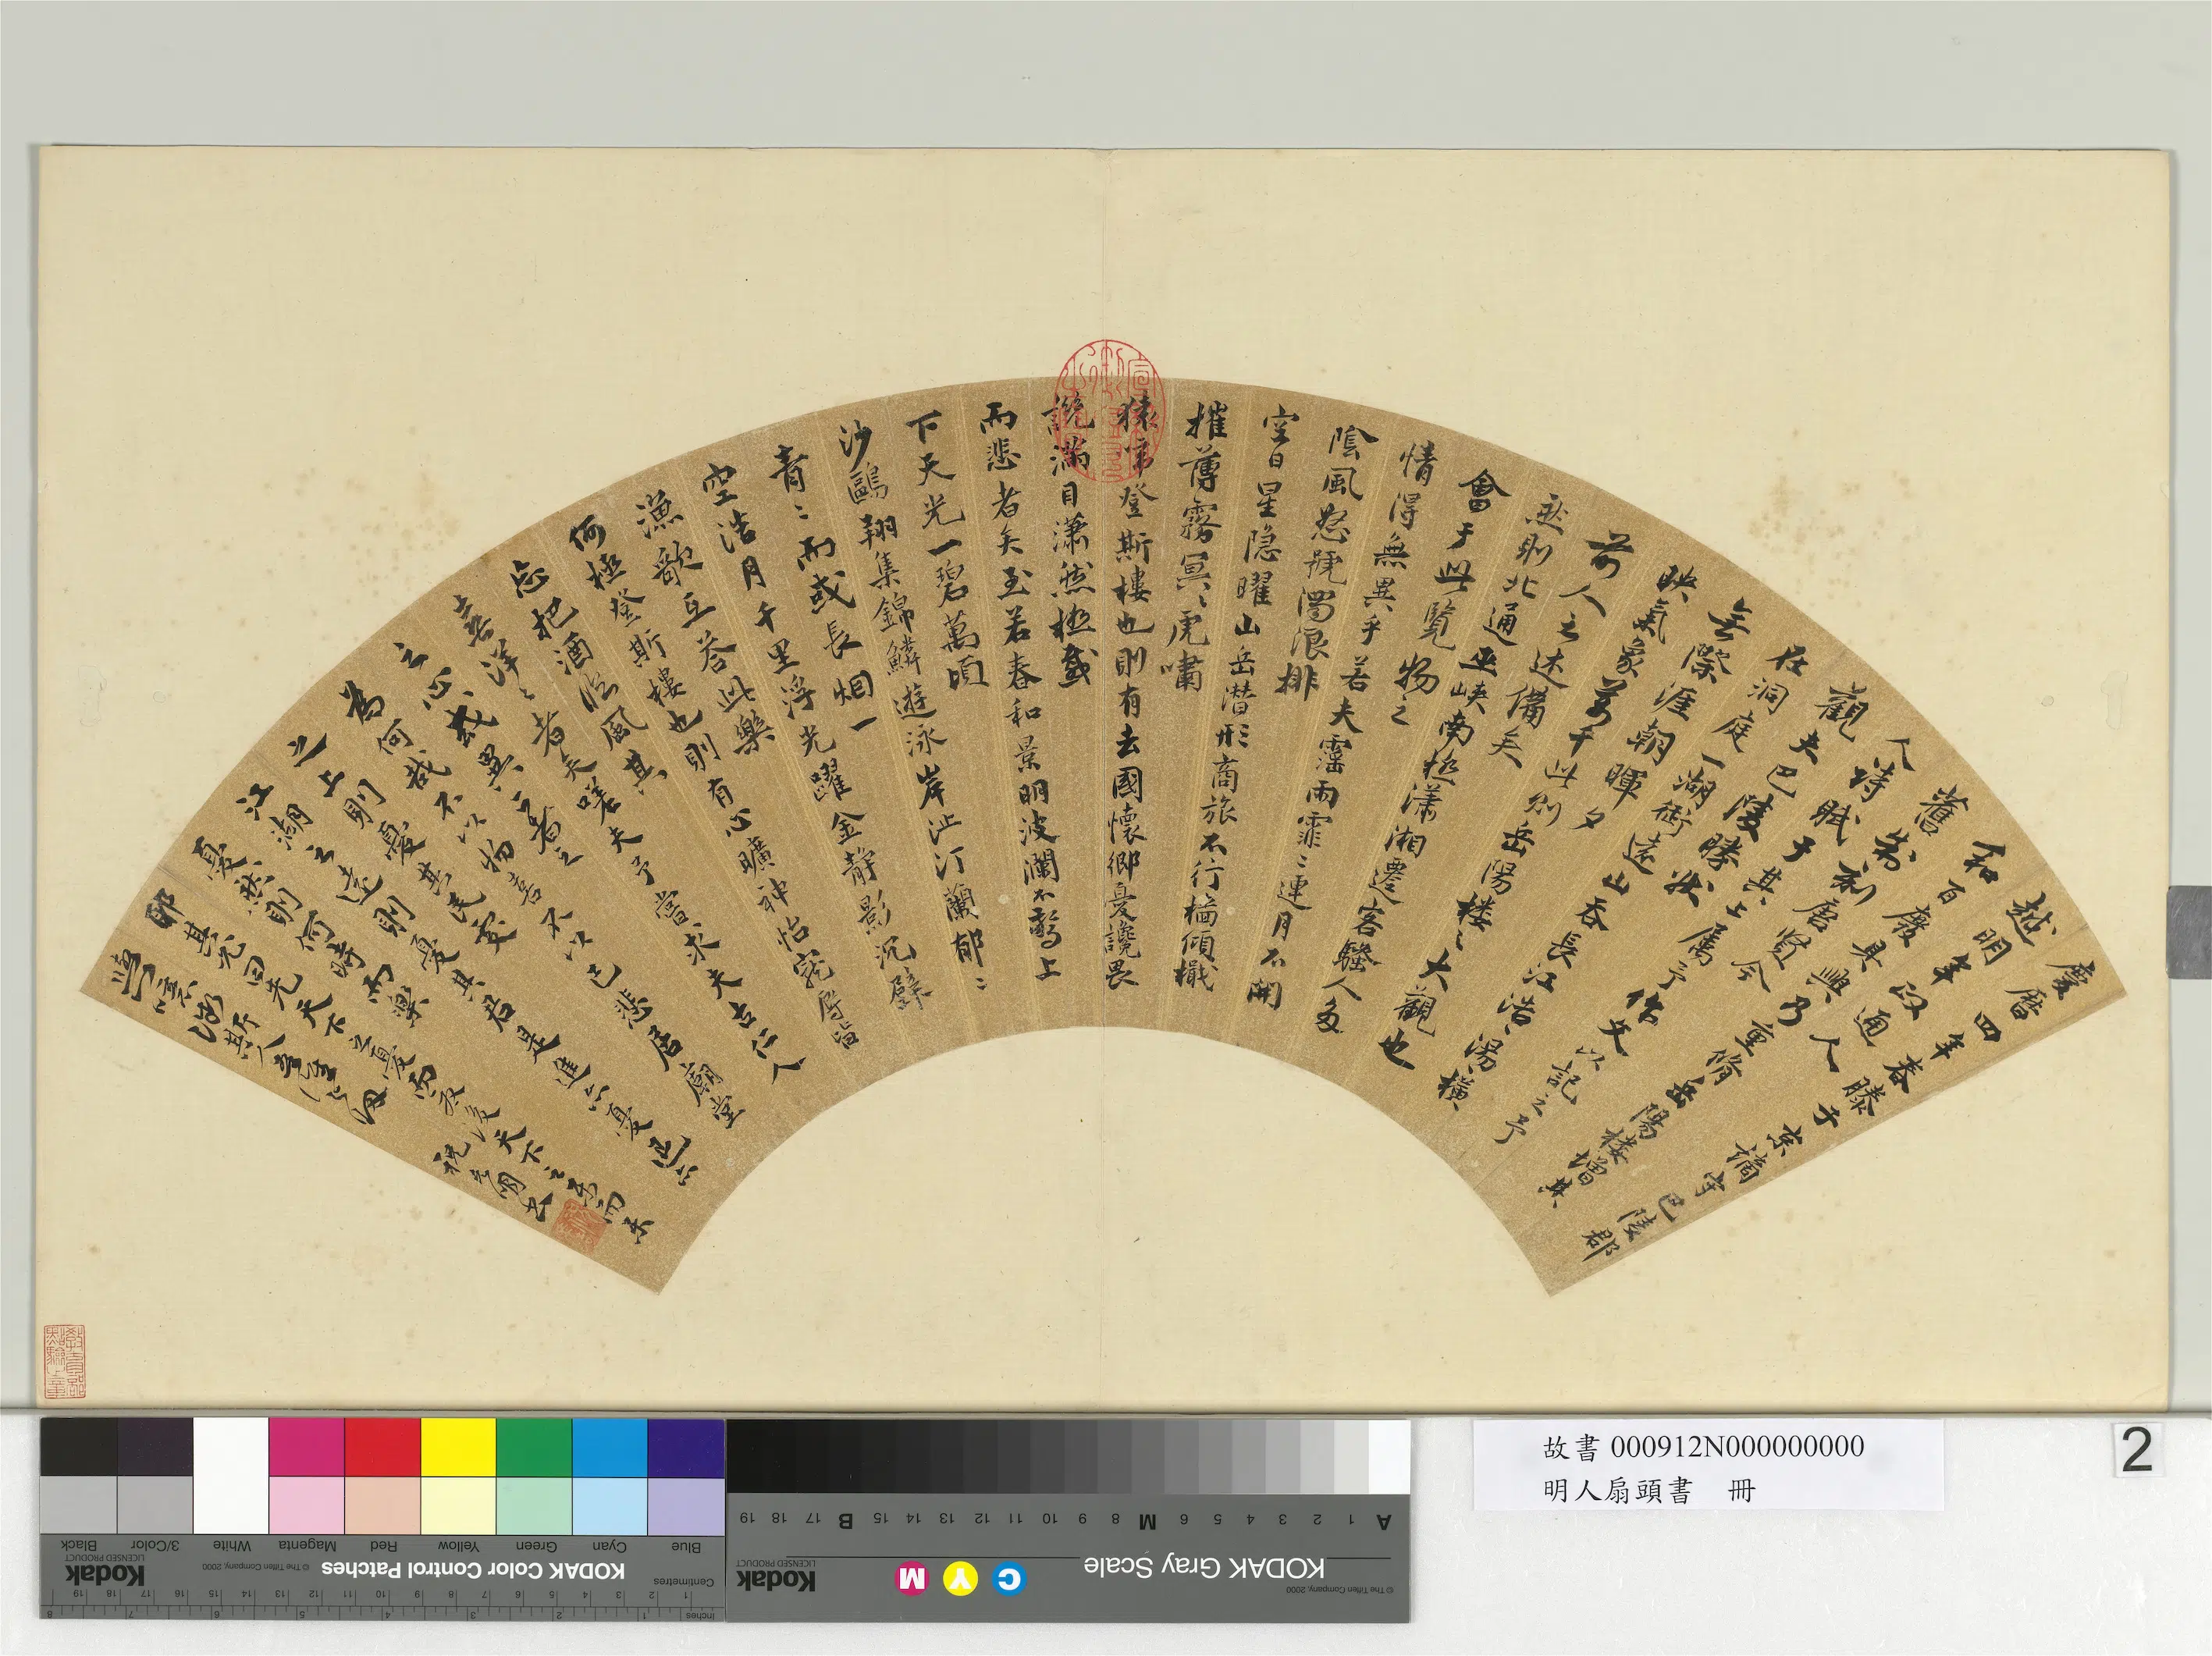 慶曆四年春滕子京謫守巴陵郡
越明年政通人
和百廢具興乃重脩岳陽樓增其
舊制刻唐賢今
人詩賦于其上属予作文以記之予
觀夫巴陵勝狀
在洞庭一湖銜遠山吞長江浩湯橫
無際涯朝暉夕
映氣象萬千此則岳陽樓之大觀也
前人之述備矣
然則北通巫峽南極瀟湘遷客騷人多
會于此覽物之
情得無異乎若夫霪雨霏〻連月不開
陰風怒號濁浪排
空日星隐曜山岳潛形商旅不行檣傾檝
摧薄霧冥〻虎嘯
猿啼登斯樓也則有去國懷鄉憂讒畏
譏滿目瀟然極感
而悲者矣至若春和景明波瀾不驚上
下天光一碧萬頃
沙鷗翔集錦鱗遊泳岸芷汀蘭郁〻
青〻而或長烟一
空浩月千里浮光躍金靜影沉璧
漁歌互答此樂
何極登斯樓也則有心曠神怡寵辱皆
忘把酒臨風其
喜洋〻者矣嗟夫予嘗求夫古仁人
之心或異二者之
為何哉不以物喜不以己悲居廟堂
之上則憂其民處
江湖之遠則憂其君是進亦憂退亦
憂然則何時而樂
耶其必曰先天下之憂而憂後天下之樂而樂
噫微斯人吾誰與歸
祝允明書
故書 000912N000000000
明人扇頭書 冊
2
KODAK Color Control Patches
Kodak
LICENSED PRODUCT
© The Tiffen Company, 2000
Blue Cyan Green Yellow Red Magenta White 3/Color Black
Centimetres
Inches
KODAK Gray Scale
Kodak
LICENSED PRODUCT
© The Tiffen Company, 2000
C Y M
A 1 2 3 4 5 6 M 8 9 10 11 12 13 14 15 B 17 18 19